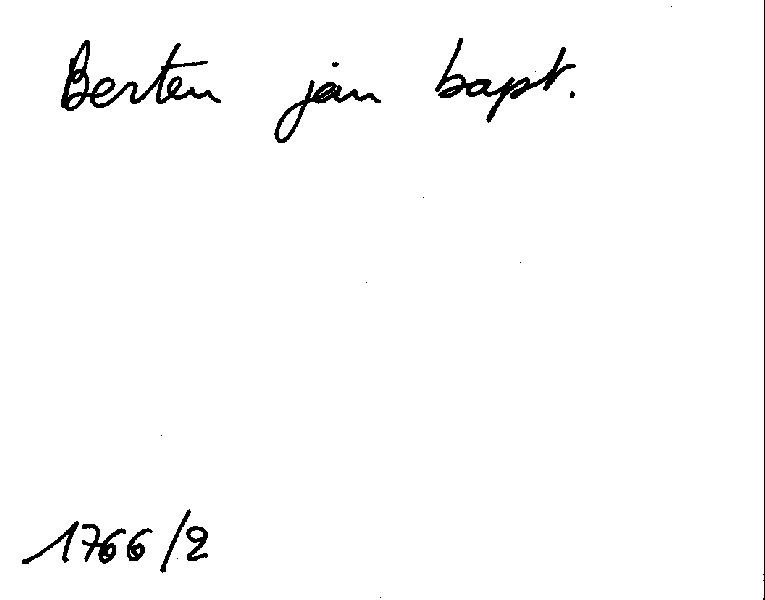 Berten jan bapt.
1766/2